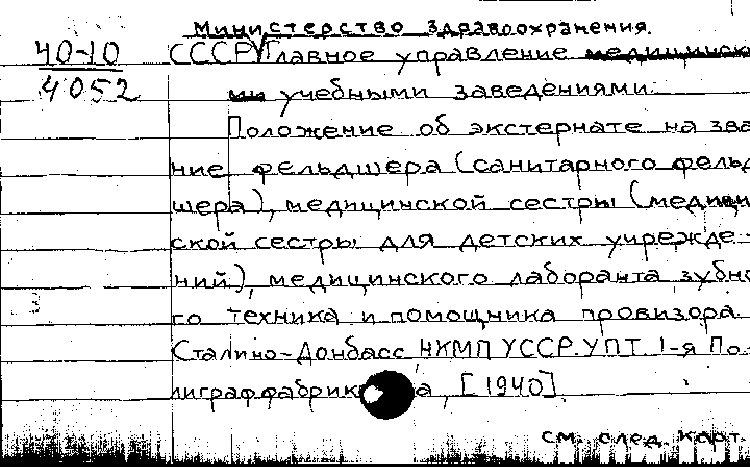 Министерство здравоохранения.
40-10 СССР. Главное управление
4052 учебными заведениями.
Положение об экстернате на зва
ние фельдшера (санитарного фельд
шера), медицинской сестры (медицин
ской сестры для детских учрежде-
ний), медицинского лаборанта зубно
го техника и помощника провизора.
Сталино-Донбасс НКМП УССР. УПТ. 1-я По-
лиграффабрика, [1940].
см. след. карт.